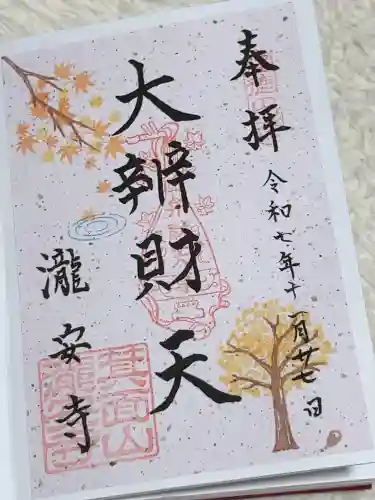 奉拝
令和七年十一月廿七日
大辨財天
瀧安寺
箕面山
瀧安寺